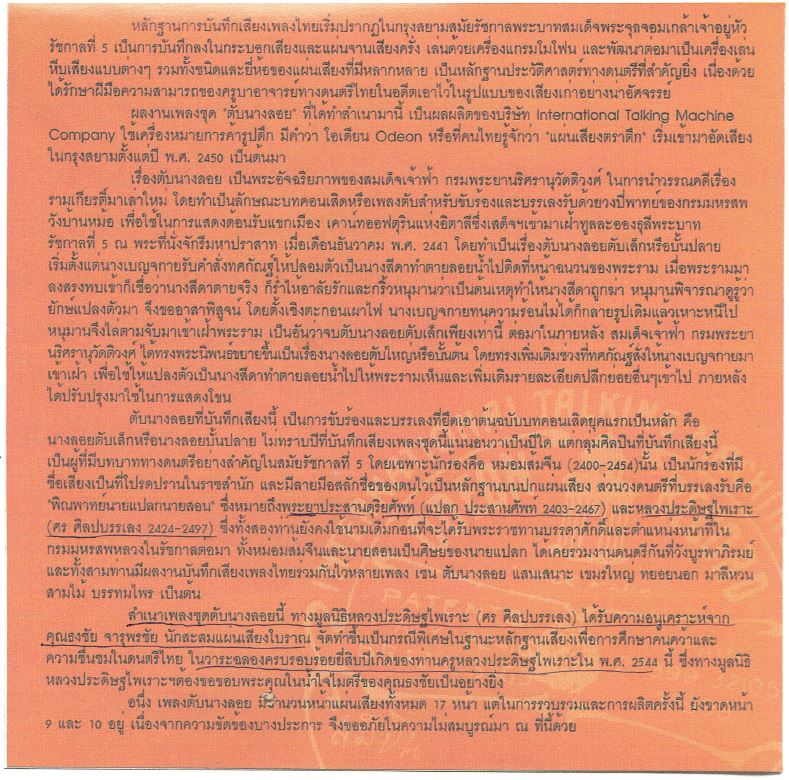 หลักฐานการบันทึกเสียงเพลงไทยเริ่มปรากฏในกรุงสยามสมัยรัชกาลพระบาทสมเด็จพระจุลจอมเกล้าเจ้าอยู่หัว
รัชกาลที่ 5 เป็นการบันทึกลงในกระบอกเสียงและแผ่นจานเสียงครั่ง เล่นด้วยเครื่องแกรมโมโฟน และพัฒนาต่อมาเป็นเครื่องเล่น
หีบเสียงแบบต่างๆ รวมทั้งชนิดและยี่ห้อของแผ่นเสียงที่มีหลากหลาย เป็นหลักฐานประวัติศาสตร์ทางดนตรีที่สำคัญยิ่ง เนื่องด้วย
ได้รักษาฝีมือความสามารถของครูบาอาจารย์ทางดนตรีไทยในอดีตเอาไว้ในรูปแบบของเสียงเก่าอย่างน่าอัศจรรย์
ผลงานเพลงชุด "ตับนางลอย" ที่ได้ทำสำเนามานี้ เป็นผลผลิตของบริษัท International Talking Machine
Company ใช้เครื่องหมายการค้ารูปตึก มีคำว่า โอเดียน Odeon หรือที่คนไทยรู้จักว่า "แผ่นเสียงตราตึก" เริ่มเข้ามาอัดเสียง
ในกรุงสยามตั้งแต่ปี พ.ศ. 2450 เป็นต้นมา
เรื่องตับนางลอย เป็นพระอัจฉริยภาพของสมเด็จเจ้าฟ้า กรมพระยานริศรานุวัดติวงศ์ ในการนำวรรณคดีเรื่อง
รามเกียรติ์มาเล่าใหม่ โดยทำเป็นลักษณะบทคอนเสิตหรือเพลงตับสำหรับขับร้องและบรรเลงรับด้วยวงปี่พาทย์ของกรมมหรสพ
วังบ้านหม้อ เพื่อใช้ในการแสดงต้อนรับแขกเมือง เคาน์ทออฟตุรินแห่งอิตาลีซึ่งเสด็จฯเข้ามาเฝ้าทูลละอองธุลีพระบาท
รัชกาลที่ 5 ณ พระที่นั่งจักรีมหาปราสาท เมื่อเดือนธันวาคม พ.ศ. 2441 โดยทำเป็นเรื่องตับนางลอยตับเล็กหรือบั้นปลาย
เริ่มตั้งแต่นางเบญจกายรับคำสั่งทศกัณฐ์ให้ปลอมตัวเป็นนางสีดาทำตายลอยน้ำไปติดที่หน้าฉนวนของพระราม เมื่อพระรามมา
ลงสรงพบเข้าก็เชื่อว่านางสีดาตายจริง ก็ร่ำไห้อาลัยรักและกริ้วหนุมานว่าเป็นต้นเหตุทำให้นางสีดาถูกฆ่า หนุมานพิจารณาดูรู้ว่า
ยักษ์แปลงตัวมา จึงขออาสาพิสูจน์ โดยตั้งเชิงตะกอนเผาไฟ นางเบญจกายทนความร้อนไม่ได้ก็กลายรูปเดิมแล้วเหาะหนีไป
หนุมานจึงไล่ตามจับมาเข้าเฝ้าพระราม เป็นอันว่าจบตับนางลอยตับเล็กเพียงเท่านี้ ต่อมาในภายหลัง สมเด็จเจ้าฟ้า กรมพระยา
นริศรานุวัดติวงศ์ ได้ทรงพระนิพนธ์ขยายขึ้นเป็นเรื่องนางลอยตับใหญ่หรือบั้นต้น โดยทรงเพิ่มเติมช่วงที่ทศกัณฐ์สั่งให้นางเบญจกายมา
เข้าเฝ้า เพื่อใช้ให้แปลงตัวเป็นนางสีดาทำตายลอยน้ำไปให้พระรามเห็นและเพิ่มเติมรายละเอียดปลีกย่อยอื่นๆเข้าไป ภายหลัง
ได้ปรับปรุงมาใช้ในการแสดงโขน
ตับนางลอยที่บันทึกเสียงนี้ เป็นการขับร้องและบรรเลงที่ยึดเอาต้นฉบับบทคอนเสิดยุคแรกเป็นหลัก คือ
นางลอยตับเล็กหรือนางลอยบั้นปลาย ไม่ทราบปีที่บันทึกเสียงเพลงชุดนี้แน่นอนว่าเป็นปีใด แต่กลุ่มศิลปินที่บันทึกเสียงนี้
เป็นผู้ที่มีบทบาททางดนตรีอย่างสำคัญในสมัยรัชกาลที่ 5 โดยเฉพาะนักร้องคือ หม่อมส้มจีน (2400-2454)นั้น เป็นนักร้องที่มี
ชื่อเสียงเป็นที่โปรดปรานในราชสำนัก และมีลายมือสลักชื่อของตนไว้เป็นหลักฐานบนปกแผ่นเสียง ส่วนวงดนตรีที่บรรเลงรับคือ
"พิณพาทย์นายแปลกนายสอน" ซึ่งหมายถึงพระยาประสานดุริยศัพท์ (แปลก ประสานศัพท์ 2403-2467) และหลวงประดิษฐไพเราะ
(ศร ศิลปบรรเลง 2424-2497) ซึ่งทั้งสองท่านยังคงใช้นามเดิมก่อนที่จะได้รับพระราชทานบรรดาศักดิ์และตำแหน่งหน้าที่ใน
กรมมหรสพหลวงในรัชกาลต่อมา ทั้งหม่อมส้มจีนและนายสอนเป็นศิษย์ของนายแปลก ได้เคยร่วมงานดนตรีกันที่วังบูรพาภิรมย์
และทั้งสามท่านมีผลงานบันทึกเสียงเพลงไทยร่วมกันไว้หลายเพลง เช่น ตับนางลอย แสนเสนาะ เขมรใหญ่ ทยอยนอก มาลีหวน
สามไม้ บรรทมไพร เป็นต้น
สำเนาเพลงชุดตับนางลอยนี้ ทางมูลนิธิหลวงประดิษฐไพเราะ (ศร ศิลปบรรเลง) ได้รับความอนุเคราะห์จาก
คุณธงชัย จารุพรชัย นักสะสมแผ่นเสียงโบราณ จัดทำขึ้นเป็นกรณีพิเศษในฐานะหลักฐานเสียงเพื่อการศึกษาค้นคว้าและ
ความชื่นชมในดนตรีไทย ในวาระฉลองครบรอบร้อยยี่สิบปีเกิดของท่านครูหลวงประดิษฐไพเราะใน พ.ศ. 2544 นี้ ซึ่งทางมูลนิธิ
หลวงประดิษฐไพเราะฯต้องขอขอบพระคุณในน้ำใจไมตรีของคุณธงชัยเป็นอย่างยิ่ง
อนึ่ง เพลงตับนางลอย มีจำนวนหน้าแผ่นเสียงทั้งหมด 17 หน้า แต่ในการรวบรวมและการผลิตครั้งนี้ ยังขาดหน้า
9 และ 10 อยู่ เนื่องจากความขัดข้องบางประการ จึงขออภัยในความไม่สมบูรณ์มา ณ ที่นี้ด้วย